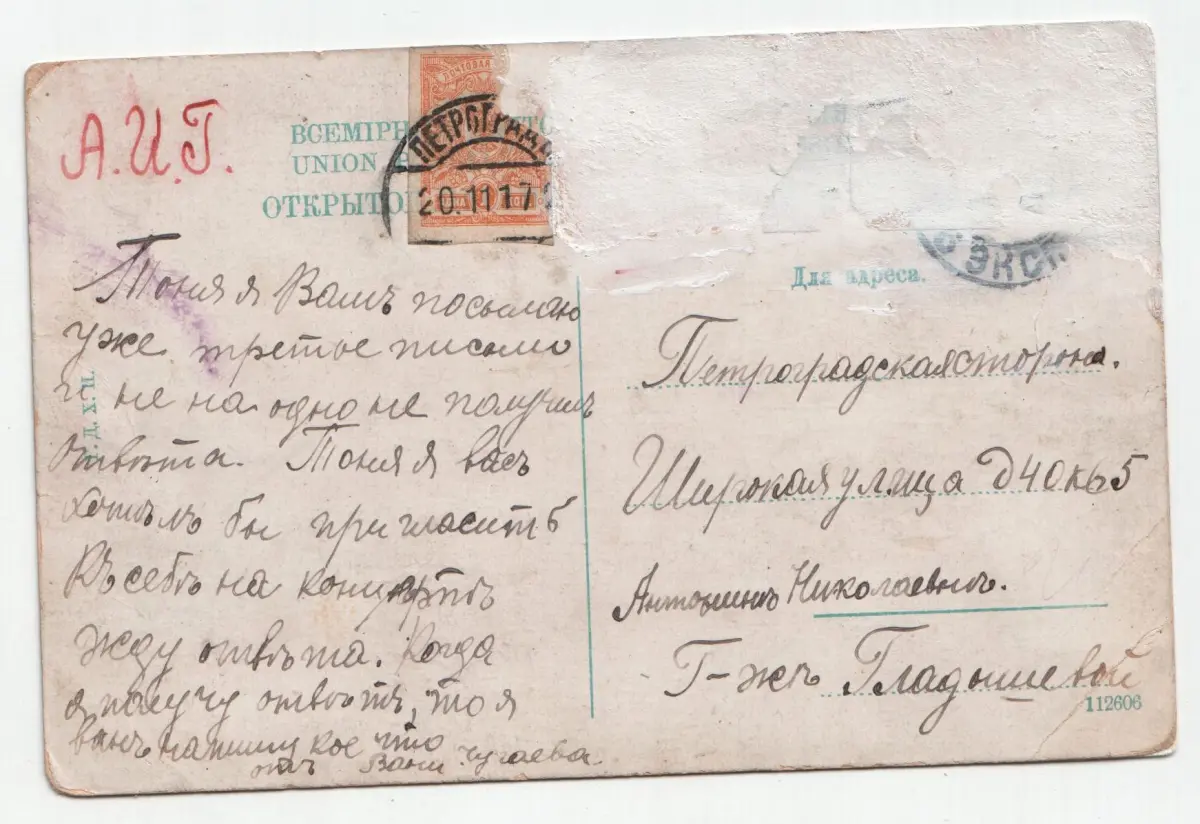 А.И.Г.
ВСЕМІРН
UNION
ОТКРЫТО
ПОЧТОВАЯ
ПЕТРОГРАДЪ
20.11.17
ЭКСП
Для адреса.
Тоня я Вамъ посылаю
уже третье письмо
и не на одно не получилъ
отвѣта. Тоня я васъ
хотѣлъ бы пригласить
Къ себѣ на концертъ
жду отвѣта. Когда
я получу отвѣтъ, то я
вамъ напишу кое что
отъ Вани Чугаева.
Д.Х.П.
Петроградская сторона.
Широкая улица д 40 к 65
Антонинѣ Николаевнѣ.
Г-жѣ Гладышевой
112606